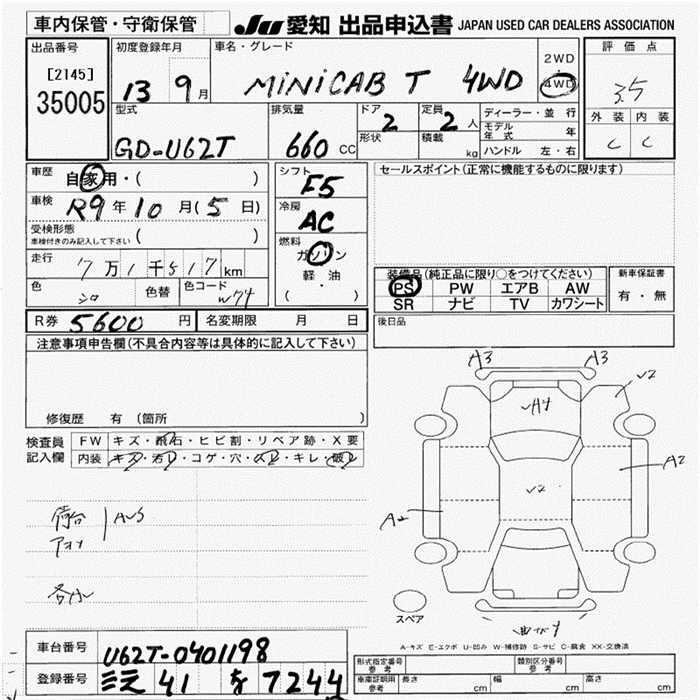 車内保管・守衛保管
JU 愛知 出品申込書 JAPAN USED CAR DEALERS ASSOCIATION
出品番号
[2145]
35005
初度登録年月
13 9月
車名・グレード
MINICAB T 4WD
2WD
・
4WD
評価点
3.5
外装 内装
C C
型式
GD-U62T
排気量
660 CC
ドア
2
形状
定員
2人
積載
kg
ディーラー・並 行
モデル年式 年
ハンドル 左・右
車歴
自家用・( )
車検
R9年10月(5日)
受検形態
車検付きのみ記入して下さい ( )
走行
7万1千517km
色
シロ
色替
色コード
W74
シフト
F5
冷房
AC
燃料
ガソリン
軽・油
( )
セールスポイント(正常に機能するものに限ります)
装備品(純正品に限り○をつけてください)
PS PW エアB AW
SR ナビ TV カワシート
新車保証書
有・無
後日品
R券 5600円 名変期限 月 日
注意事項申告欄(不具合内容等は具体的に記入して下さい)
修復歴 有 (箇所 )
検査員
記入欄
FW キズ・飛石・ヒビ割・リペア跡・X要
内装 キズ・汚レ・コゲ・穴・スレ・キレ・破レ
荷台
アオリ
A・S
各小
A3 A3
A4
√2
A2
√2
A2
スペア
曲ガリ
A-キズ E-エクボ U-凹み W-補修跡 S-サビ C-腐食 XX-交換済
車台番号 U62T-0401198
登録番号 41 7244
形式指定番号
参考
類別区分番号
参考
車庫証明用
参考
長さ cm 幅 cm 高さ cm